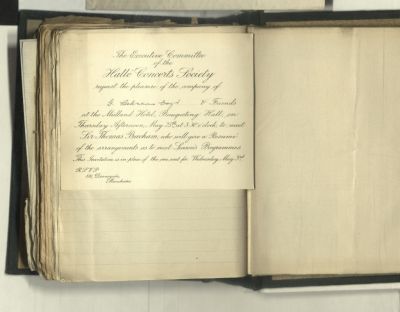 The Executive Committee
of the
Hallé Concerts Society
request the pleasure of the company of
G. Behrens Esqre & Friends
at the Midland Hotel, Banqueting Hall, on
Thursday Afternoon, May at 3 o'clock, to meet
Sir Thomas Beecham, who will give a Resumé
of the arrangements as to next Season's Programmes
This Invitation is in place of the one sent for Wednesday May 3rd
R.S.V.P.
Deansgate,
Manchester